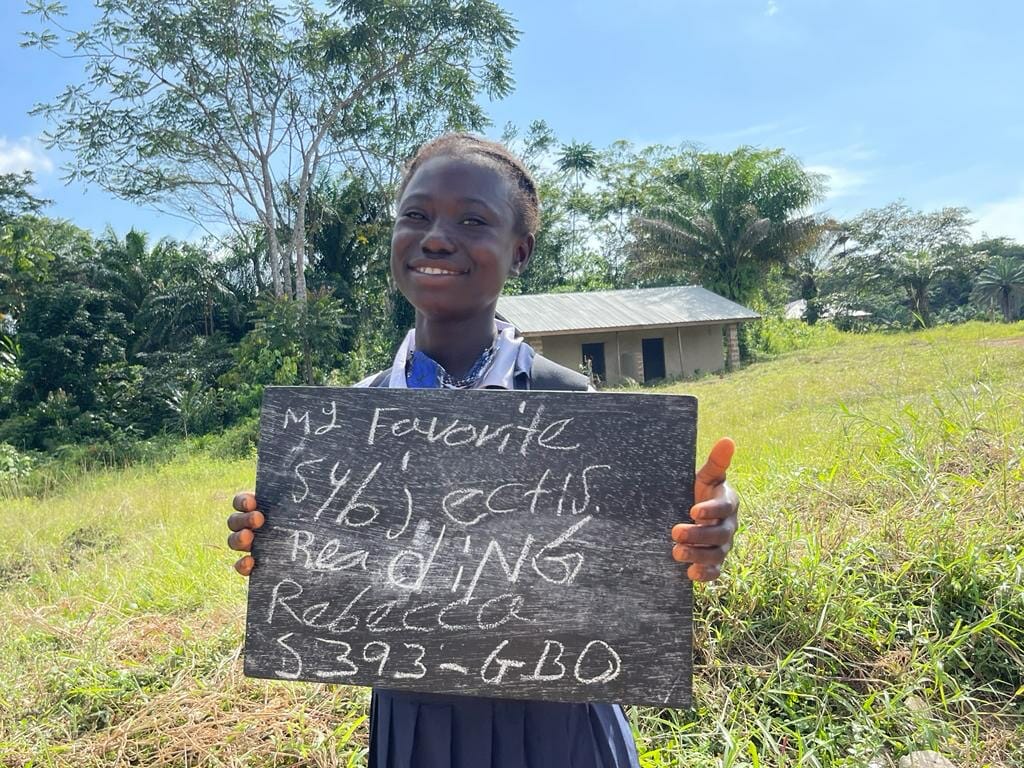 My Favorite
Subject is.
ReadiNG
Rebecca
S393-GBO